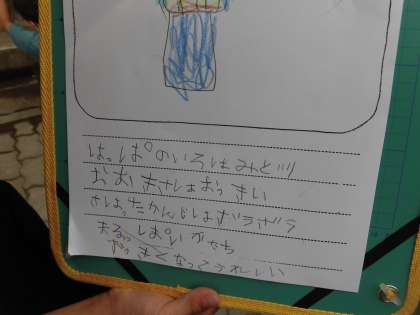 はっぱのいろはみどり
おおきさはおっきい
さわったかんじはザラザラ
まるっしぽいかたち
おっきくなってうれしい